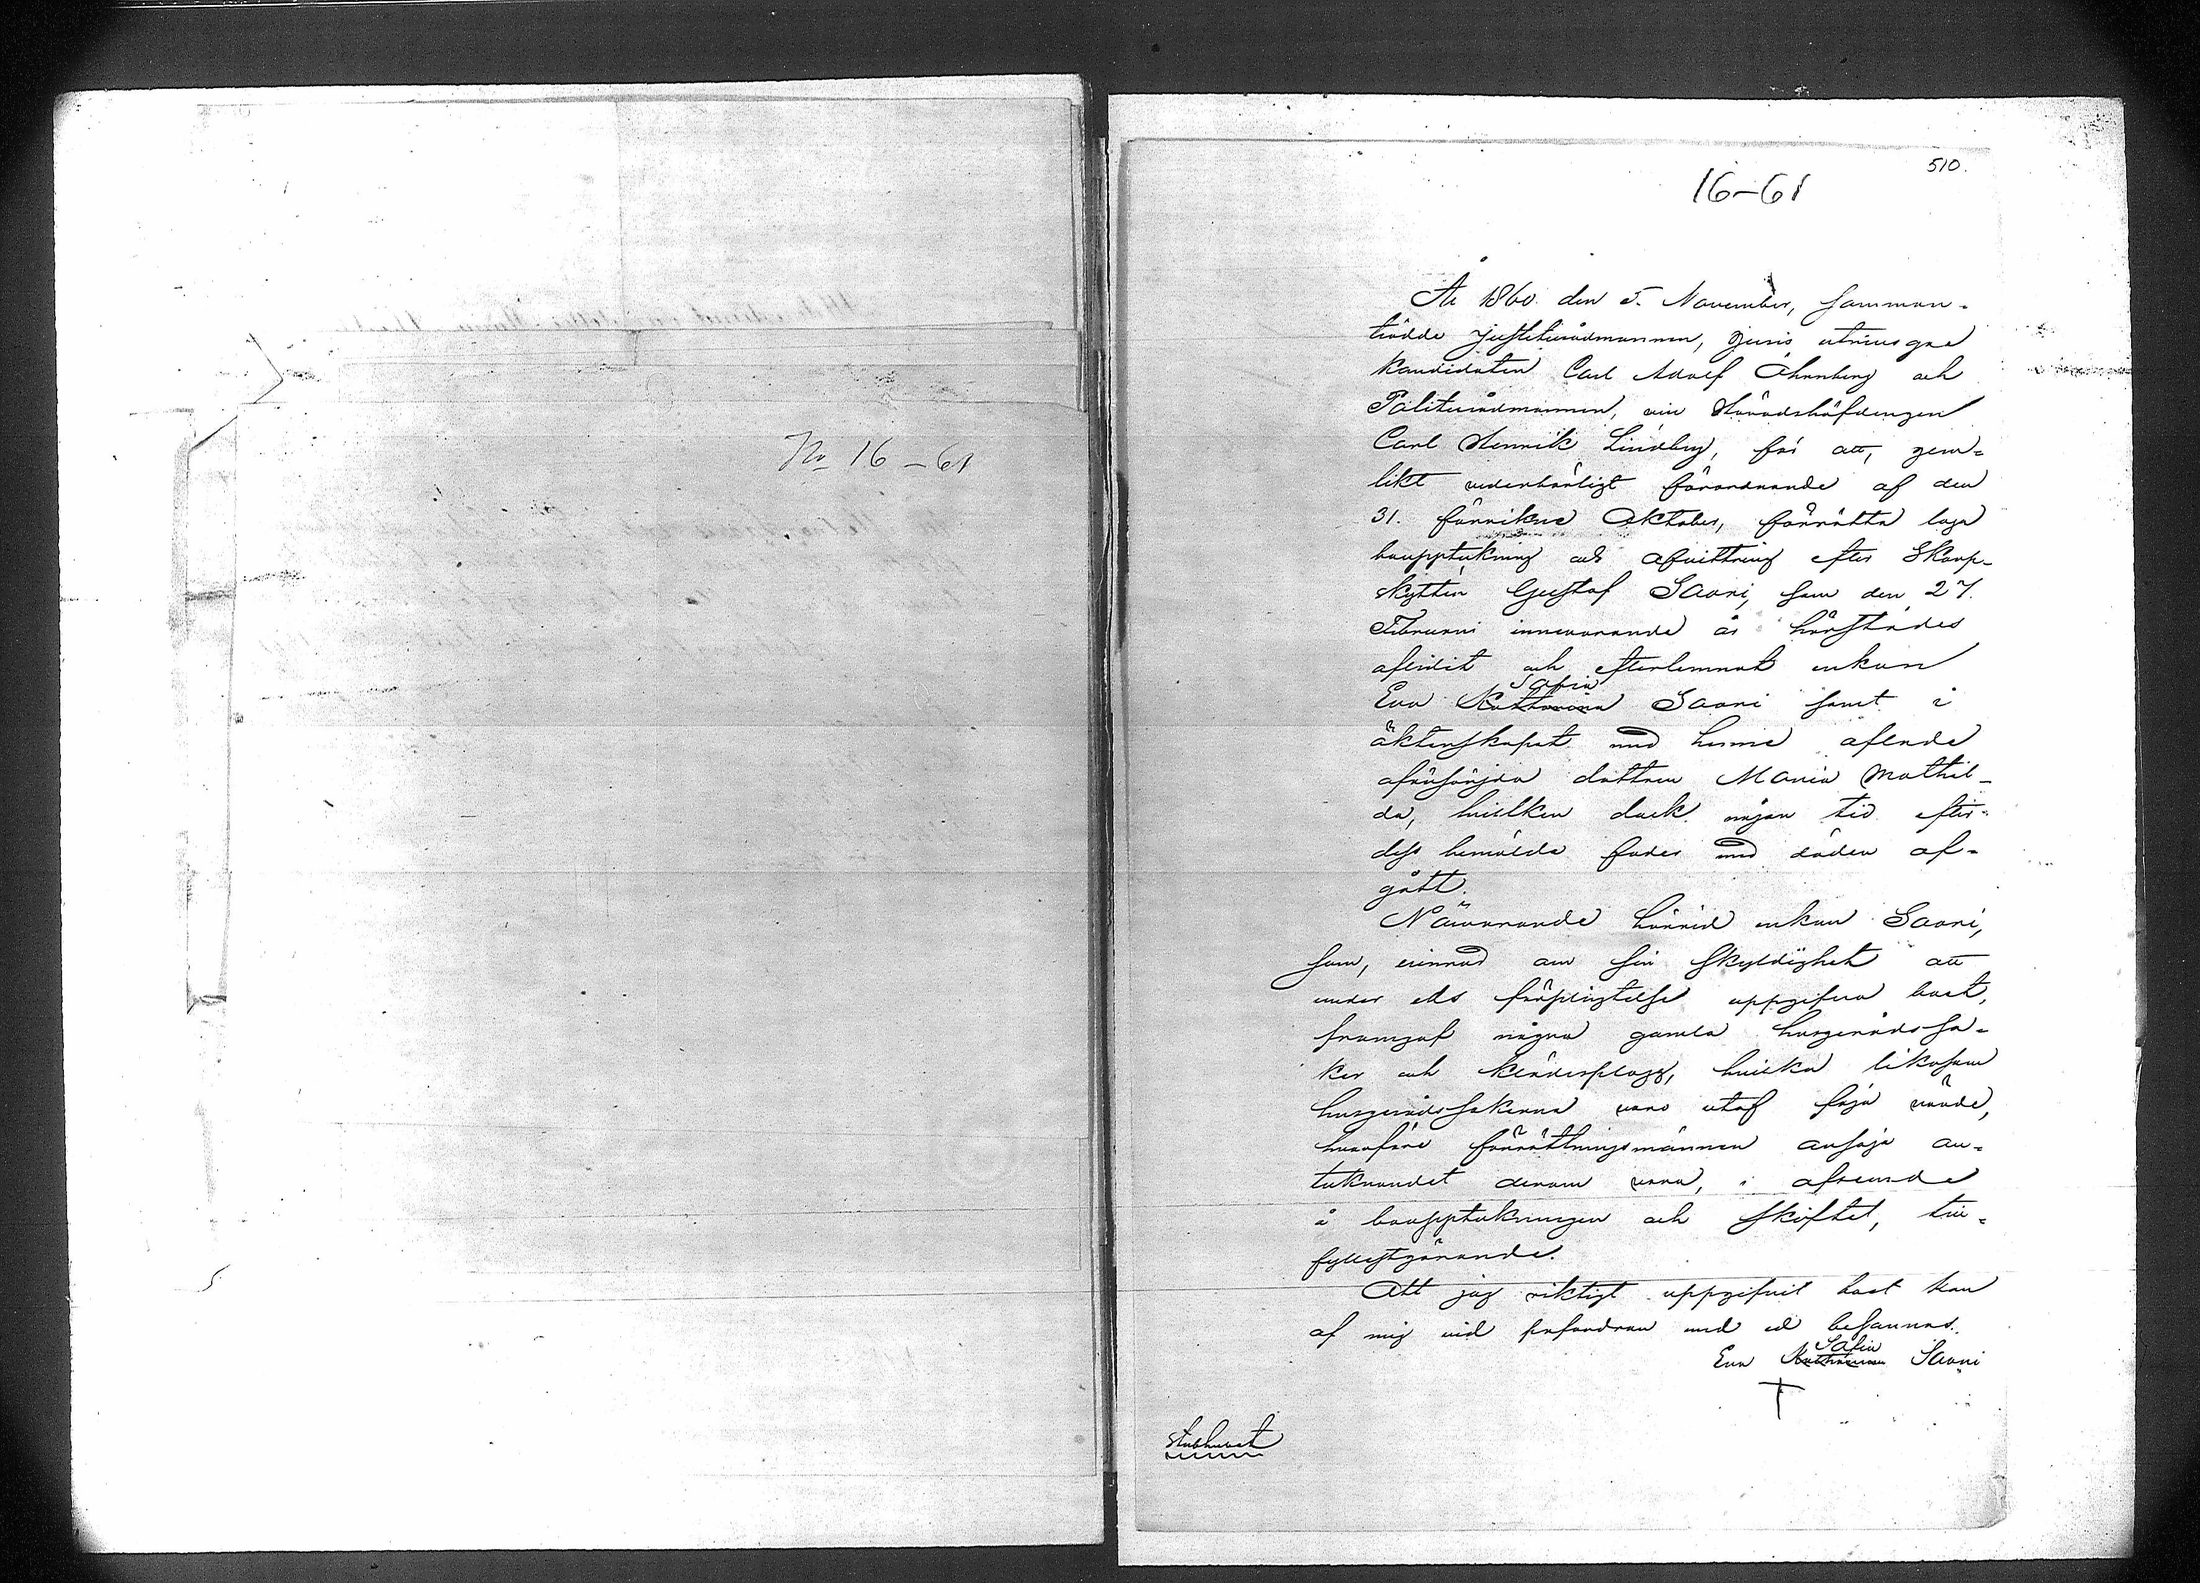 No 16-61
510.
16-61
År 1860 den 5. November, samman-
trädde Justitierådmannen, Juris utriusque
kandidaten Carl Adolf Öhrnberg och
Politierådmannen, vice Häradshöfdingen
Carl Henrik Lindberg, för att, jem-
likt vederbörligt förordnande af den
31. förvikne Oktober, förrätta laga
bouppteckning och afvittring efter Skarp-
skytten Gustaf Saari, som den 27.
Februari innevarande år härstädes
aflidit och efterlemnat enkan
Sofia
Eva Katharina Saari samt i
äktenskapet med henne aflade
oförsörjda dottren Maria Mathil-
da, hvilken dock någon tid efter
dess bemälde fader med döden af-
gått.
Närvarande härvid enkan Saari,
som, erinrad om sin skyldighet att
under eds förpligtelse uppgifva boet,
framgaf några gamla husgerådssa-
ker och klädesplagg, hvilka likasom
husgerådssakerna voro utaf föga värde,
hvarföre förrättningsmännen ansågo an-
tecknandet derom vara, i afseende
å bouppteckningen och skiftet, till-
fyllestgörande.
Att jag riktigt uppgifvit boet kan
af mig vid påfordran med ed besannas.
Sofia
Eva Katharina Saari